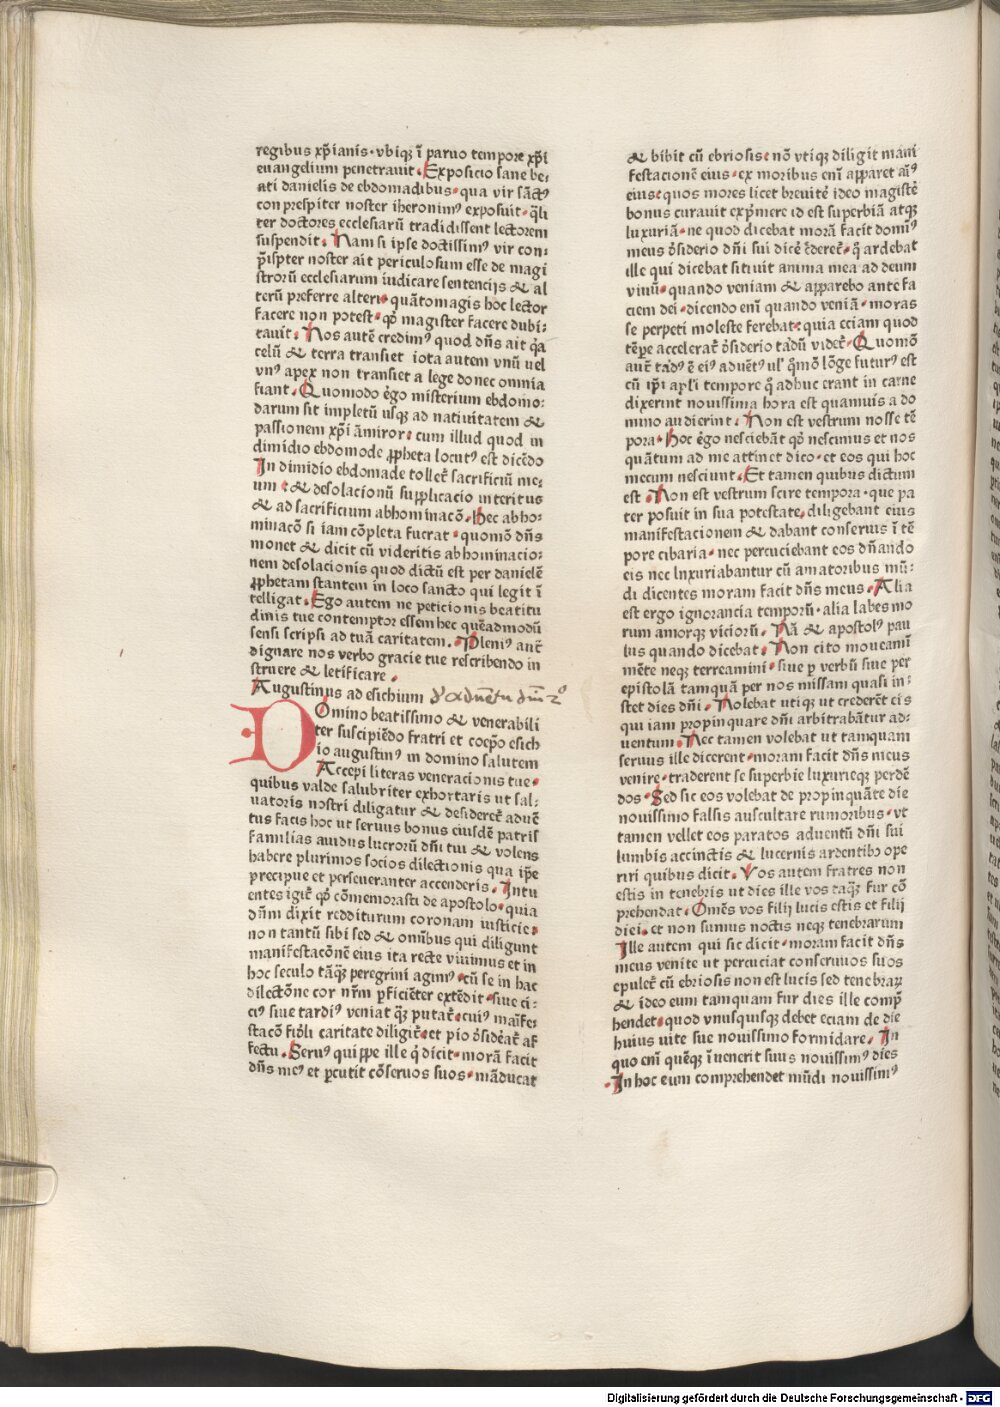 regibus xp̄ianis · vbiqꝫ ī paruo tempore xp̄i
euangelium penetrauit · Exposicio sane be⸗
ati danielis de ebdomadibus · qua vir sāctꝰ
conprespiter noster iheronimꝰ exposuit · q̄li
ter doctores ecclesiarū tradidissent lectorem
suspendit · Nam si ipse doctissimꝰ vir con⸗
p̄ispter noster ait periculosum esse de magi
strorū ecclesiarum iudicare sentencijs & al
terū preferre alteri · quātomagis hoc lector
facere non potest · qd̓ magister facere dubi⸗
tauit · Nos autē credimꝰ quod dn̄s ait q̓a
celū & terra transiet iota autem vnū uel
vnꝰ apex non transiet a lege donec omnia
fiant · Quomodo ēgo misterium ebdomo⸗
darum sit impletū usqꝫ ad natiuitatem &
passionem xp̄i āmiror · cum illud quod in
dimidio ebdomode ꝓpheta locutꝰ est dicēdo
In dimidio ebdomade tollet̄ sacrificiū me⸗
um · & desolacionū supplicacio interitus
& ad sacrificium abhominacō · Hec abho⸗
minacō si iam cōpleta fuerat · quomō dn̄s
monet & dicit cū videritis abhominacio⸗
nem desolacionis quod dictū est per danielē
ꝓphetam stantem in loco sancto qui legit ī
telligat · Ego autem ne peticionis beatitu
dinis tue contemptor essem hec quēadmodū
sensi scripsi ad tuā caritatem · Pleniꝰ aut̄
dignare nos verbo gracie tue rescribendo in
struere & letificare ·
Augustinus ad esichium
DOmino beatissimo & venerabili
ter suscipiēdo fratri et coep̄o esich
io augustinꝰ in domino salutem
Accepi literas veneracionis tue ·
quibus valde salubriter exhortaris ut sal⸗
uatoris nostri diligatur & desideret̄ aduē
tus facis hoc ut seruus bonus eiusdē patris
familias auidus lucrorū dn̄i tui & volens
habere plurimos socios dilectionis qua ip̄e
precipue et perseueranter accenderis · Intu
entes igit̄ qd̓ cōmemorasti de apostolo · quia
dn̄m dixit redditurum coronam iusticie ·
non tantū sibi sed & omībus qui diligunt
manifestacōnē eius ita recte viuimus et in
hoc seculo tāqꝫ peregrini agimꝰ · cū se in hac
dilectōne cor nr̄m ꝓficiēter extēdit · siue ci⸗
ciꝰ siue tardiꝰ veniat qꝫ putat̄ · cuiꝰ maīfe⸗
stacō fid̓li caritate diligit̄ · et pio d̓sidēat̄ af
fectu · Seruꝰ quippe ille q̓ dicit · morā facit
dn̄s meꝰ et ꝑcutit cōseruos suos · māducat
& bibit cū ebriosis · nō vtiqꝫ diligit mani
festacionē eius · ex moribus enī apparet aīꝰ
eius · quos mores licet breuitē ideo magistē
bonus curauit exp̓mere id est superbiā atqꝫ
luxuriā · ne quod dicebat morā facit domꝰ
meus d̓siderio dn̄i sui dicē c̄deret̄ · q̓ ardebat
ille qui dicebat sitiuit anima mea ad deum
viuū · quando veniam & apparebo ante fa
ciem dei · dicendo enī quando veniā · moras
se perpeti moleste ferebat · quia eciam quod
tēꝑe accelerat̄ d̓siderio tādū videt̄ · Quomō
aut̄ tādꝰ ē eiꝰ aduētꝰ ul̓ q̓mō lōge futurꝰ est
cū ip̄i apl̓i tempore q̓ adhuc erant in carne
dixerint nouissima hora est quamuis a do
mino audierint · Non est vestrum nosse tē
pora · Hoc ēgo nesciebāt qd̓ nescimus et nos
quātum ad me attinet dico · et eos qui hoc
mecum nesciunt · Et tamen quibus dictum
est · Non est vestrum scire tempora · que pa
ter posuit in sua potestate · diligebant eius
manifestacionem & dabant conseruis ī tē
pore cibaria · nec percuciebant eos dn̄ando
eis nec lnxuriabantur cū amatoribus mū⸗
di dicentes moram facit dn̄s meus · Alia
est ergo ignorancia temporū · alia labes mo
rum amorqꝫ viciorū · Nā & apostolꝰ pau
lus quando dicebat · Non cito moueamī
mēte neqꝫ terreamini · siue ꝑ verbū siue per
epistolā tamquā per nos missam quasi in⸗
stet dies dn̄i · Nolebat utiqꝫ ut crederēt eis
qui iam propinquare dn̄i arbitrabātur ad⸗
uentum · Nec tamen volebat ut tamquam
seruus ille dicerent · moram facit dn̄s meus
venire · traderent se superbie luxurieqꝫ perdē
dos · Sed sic eos volebat de propinquāte die
nouissimo falsis auscultare rumoribus · vt
tamen vellet eos paratos aduentū dn̄i sui
lumbis accinctis & lucernis ardentibꝰ ope
riri quibus dicit · Vos autem fratres non
estis in tenebris ut dies ille vos taqꝫ fur cō
prehendat · Omēs vos filij lucis estis et filij
diei · et non sumus noctis neqꝫ tenebrarum
Ille autem qui sic dicit · moram facit dn̄s
meus venire ut percuciat conseruos suos
epulet̄ cū ebriosis non est lucis sed tenebraꝝ
& ideo eum tamquam fur dies ille comp̄
hendet · quod vnusquisqꝫ debet eciam de die
huius uite sue nouissimo formidare · In
quo enī quēqꝫ īuenerit suus nouissimꝰ dies
In hoc eum comprehendet mūdi nouissimꝰ
Digitalisierung gefördert durch die Deutsche Forschungsgemeinschaft - DFG